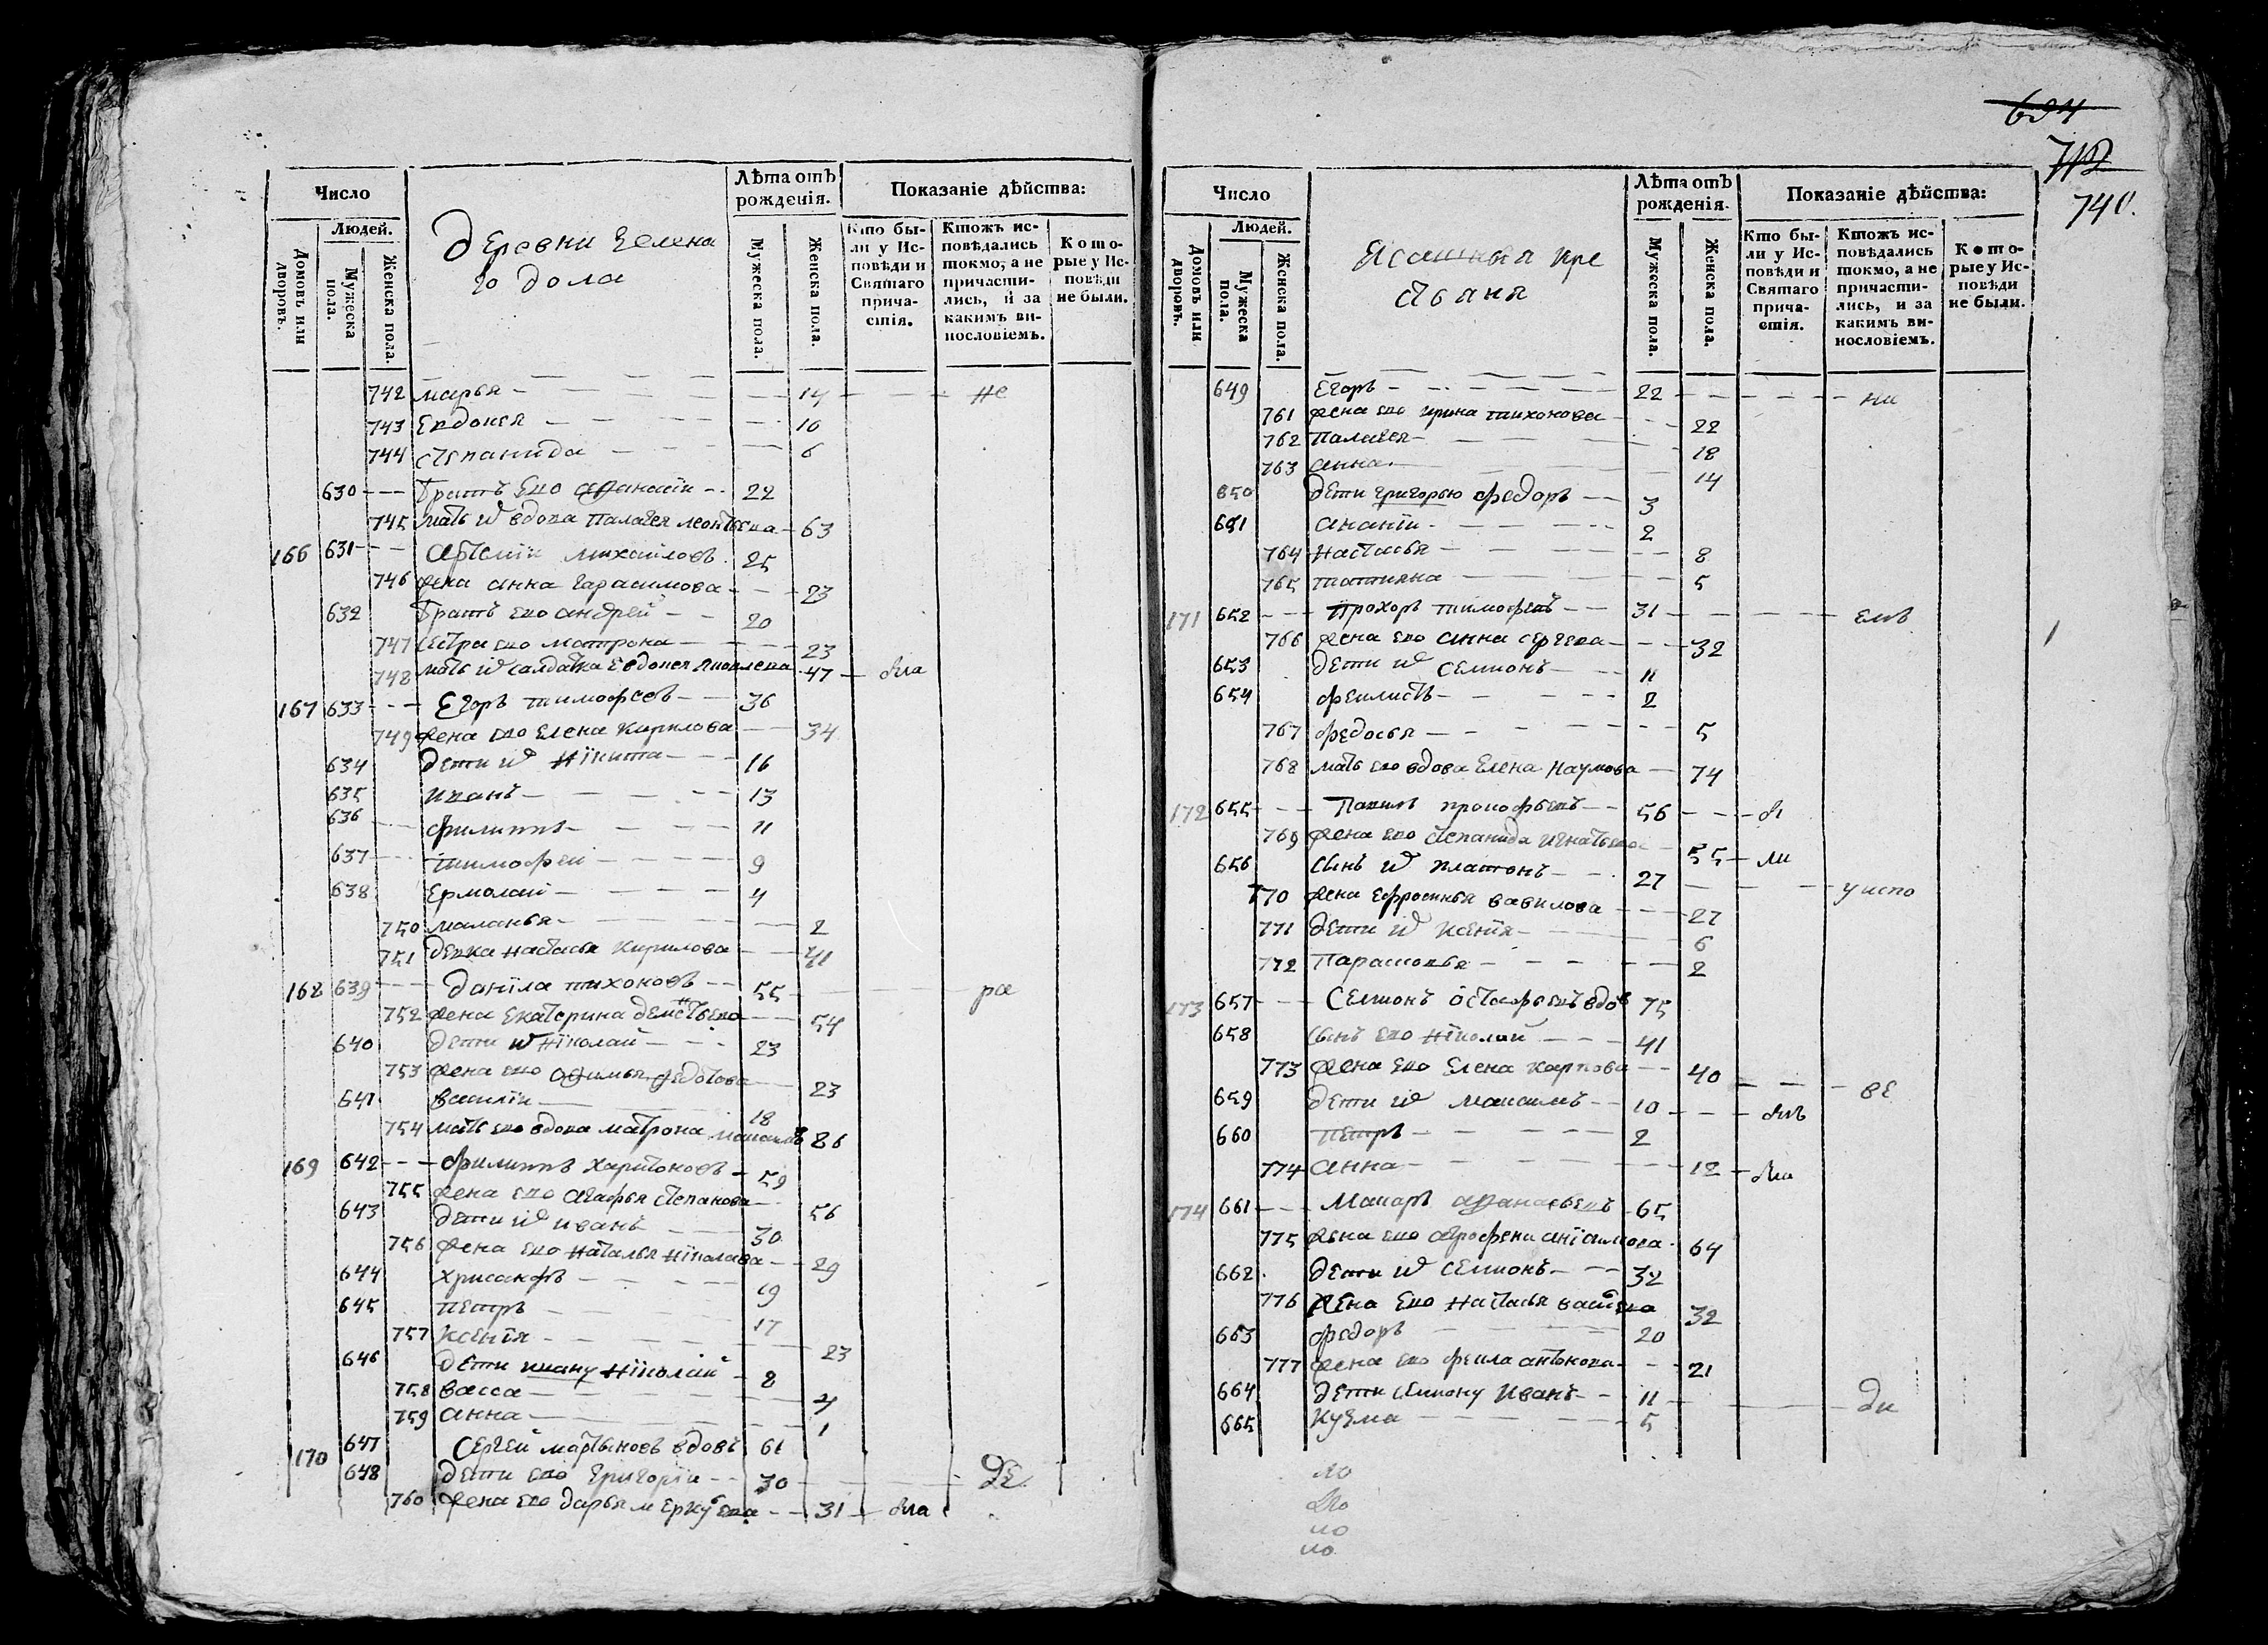 694
712
740.
Число
Лѣта отъ рожденія.
Показаніе дѣйства:
Людей.
Домовъ или дворовъ.
Мужеска пола.
Женска пола.
деревни Зелена
го дола
Мужеска пола.
Женска пола.
Кто бы-
ли у Ис-
повѣди и
Святаго
прича-
стія.
Ктожъ ис-
повѣдались
токмо, а не
причасти-
лись, и за
какимъ ви-
нословіемъ.
Кото-
рые у Ис-
повѣди
не были.
742 марья 14 не
743 Евдокея 10
744 степанида 6
630 братъ Его афанасіи 22
745 мать их вдова Палагея леонтьева 63
166 631 артемiи михаиловъ 25
746 жена анна гарасимова 23
632 братъ его андрей 20
747 сестра его матрона 23
748 мать их салдатка Евдокея яковлева 47 была
167 633 Егоръ тимофеевъ 36
749 жена его Елена Кирилова 34
634 дети их Нiкита 16
635 иванъ 13
636 филиппъ 11
637 тимофеи 9
638 Ермолаи 4
750 маланья 2
751 девка настасья Кирилова 41
168 639 данiла тихоновъ 55 ра
752 жена Екатерина 54
640 дети их Нiколай 23
753 жена его афимья федотова 23
641 василiи 18
754 мать его вдова матрона 86
169 642 филиппъ харитоновъ 59
755 жена его агафья степанова 56
643 дети их иванъ 30
756 жена его наталья нiколаева 29
644 хрисанфъ 19
645 петръ 17
757 ксенiя 23
646 дети ивану Нiколаи 8
758 васса 4
759 анна 1
170 647 Сергеи мартыновъ вдовъ 61
648 дети его григорiи 30 де
760 жена его дарья меркульева 31 была
Число
Лѣта отъ рожденія.
Показаніе дѣйства:
Людей.
Домовъ или дворовъ.
Мужеска пола.
Женска пола.
Ясашныя кре
стьяня
Мужеска пола.
Женска пола.
Кто бы-
ли у Ис-
повѣди и
Святаго
прича-
стія.
Ктожъ ис-
повѣдались
токмо, а не
причасти-
лись, и за
какимъ ви-
нословіемъ.
Кото-
рые у Ис-
повѣди
не были.
649 Егоръ 22 ни
761 жена его ирина тихонова 22
762 Палагея 18
763 анна 14
650 дети григорью федоръ 3
651 ананiи 2
764 настасья 8
765 татияна 5
171 652 Прохоръ тимофеевъ 31 емъ
766 жена его анна сергеева 32
653 дети их семионъ 11
654 феилистъ 2
767 федосья 5
768 мать его вдова Елена наумова 74
172 655 прокофьевъ 56 бы
769 жена его степанида игнатьева 55 ли
656 сынъ их платонъ 27
770 жена Ефросинья вавилова 27 у испо
771 дети их ксенiя 6
772 Парасковья 2
173 657 Семионъ остафьевъ вдов 75
658 сынъ его нiколаи 41
773 жена его Елена Карпова 40 ве
659 дети их максимъ 10 былъ
660 петръ 2
774 анна 12 была
174 661 Макаръ афанасьевъ 65
775 жена его агрофена анiсимова 64
662 дети их семионъ 32
776 жена его настасья 32
663 федоръ 20
777 жена его фекла антонова 21
664 дети семиону иванъ 11 ди
665 кузма 5